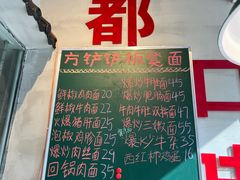 都
方铲铲 碗瓷面
鲜椒鸡肉面20
鲜椒牛肉面22
火爆猪肝面25
泡椒鸡胗面25
爆炒肉丝面29
回锅肉面35
爆炒牛肚面45
爆炒肥肠面45
牛肉牛肚双拼面47
爆炒三椒面55
爆炒牛条35
西红柿鸡蛋16